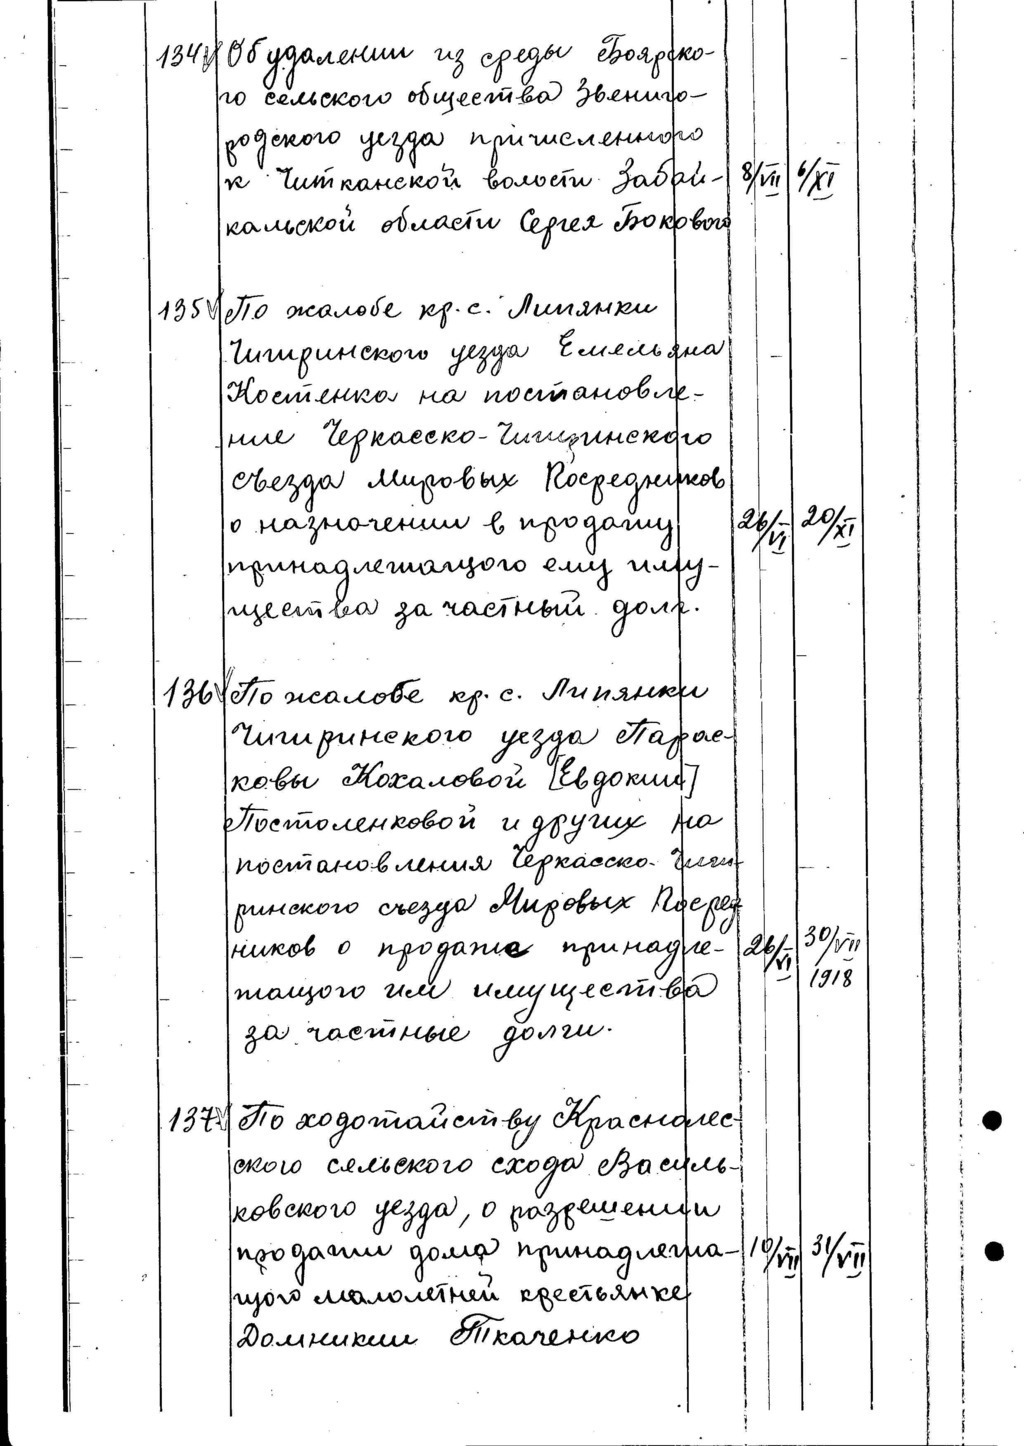 134 Об удалении из среды Боярско-
го сельского общества Звениго-
родского уезда причисленного
к Читканской волости Забай- 8/VII 6/XI
кальской области Сергея Бокового
135 По жалобе кр. с. Липянки
Чигиринского уезда Емельяна
Костенко на постановле-
ние Черкасско-Чигиринского
съезда Мировых Посредников
о назначении в продажу 26/VI 20/XI
принадлежащого ему иму-
щества за частный долг.
136 По жалобе кр. с. Липянки
Чигиринского уезда Парас-
ковы Кохаловой [Евдокии]
Постоленковой и других на
постановления Черкасско-Чиги-
ринского съезда Мировых Посред-
ников о продаже принадле- 26/VI 30/VII
жащого им имущества 1918
за частные долги.
137 По ходотайству Краснолес-
ского сельского схода Василь-
ковского уезда, о разрешении
продажи дома принадлежа- 10/VII 31/VII
щого малолетней крестьянке
Домникии Ткаченко